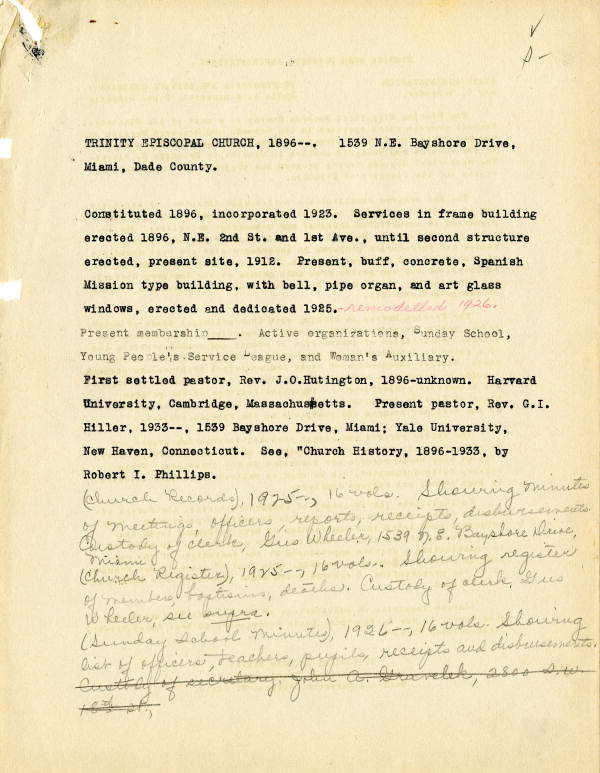 TRINITY EPISCOPAL CHURCH, 1896--. 1539 N.E. Bayshore Drive,
Miami, Dade County.
Constituted 1896, incorporated 1923. Services in frame building
erected 1896, N.E. 2nd St. and 1st Ave., until second structure
erected, present site, 1912. Present, buff, concrete, Spanish
Mission type building, with bell, pipe organ, and art glass
windows, erected and dedicated 1925. - remodelled 1926.
Present membership____. Active organizations, Sunday School,
Young People's Service League, and Woman's Auxiliary.
First settled pastor, Rev. J.O.Hutington, 1896-unknown. Harvard
University, Cambridge, Massachusetts. Present pastor, Rev. G.I.
Hiller, 1933--, 1539 Bayshore Drive, Miami; Yale University,
New Haven, Connecticut. See, "Church History, 1896-1933, by
Robert I. Phillips.
(Church Records), 1925--, 16 vols. Showing minutes
of meetings, officers, reports, receipts, disbursements.
Custody of clerk, Gus Wheeler, 1539 N.E. Bayshore Drive,
Miami
(Church Register), 1925--, 16 vols. Showing register
of members, baptisms, deaths. Custody of clerk, Gus
Wheeler, see supra.
(Sunday School Minutes), 1926--, 16 vols. Showing
list of officers, teachers, pupils, receipts and disbursements.
Custody of secretary, John A. 2800 S.W.
18th St.,